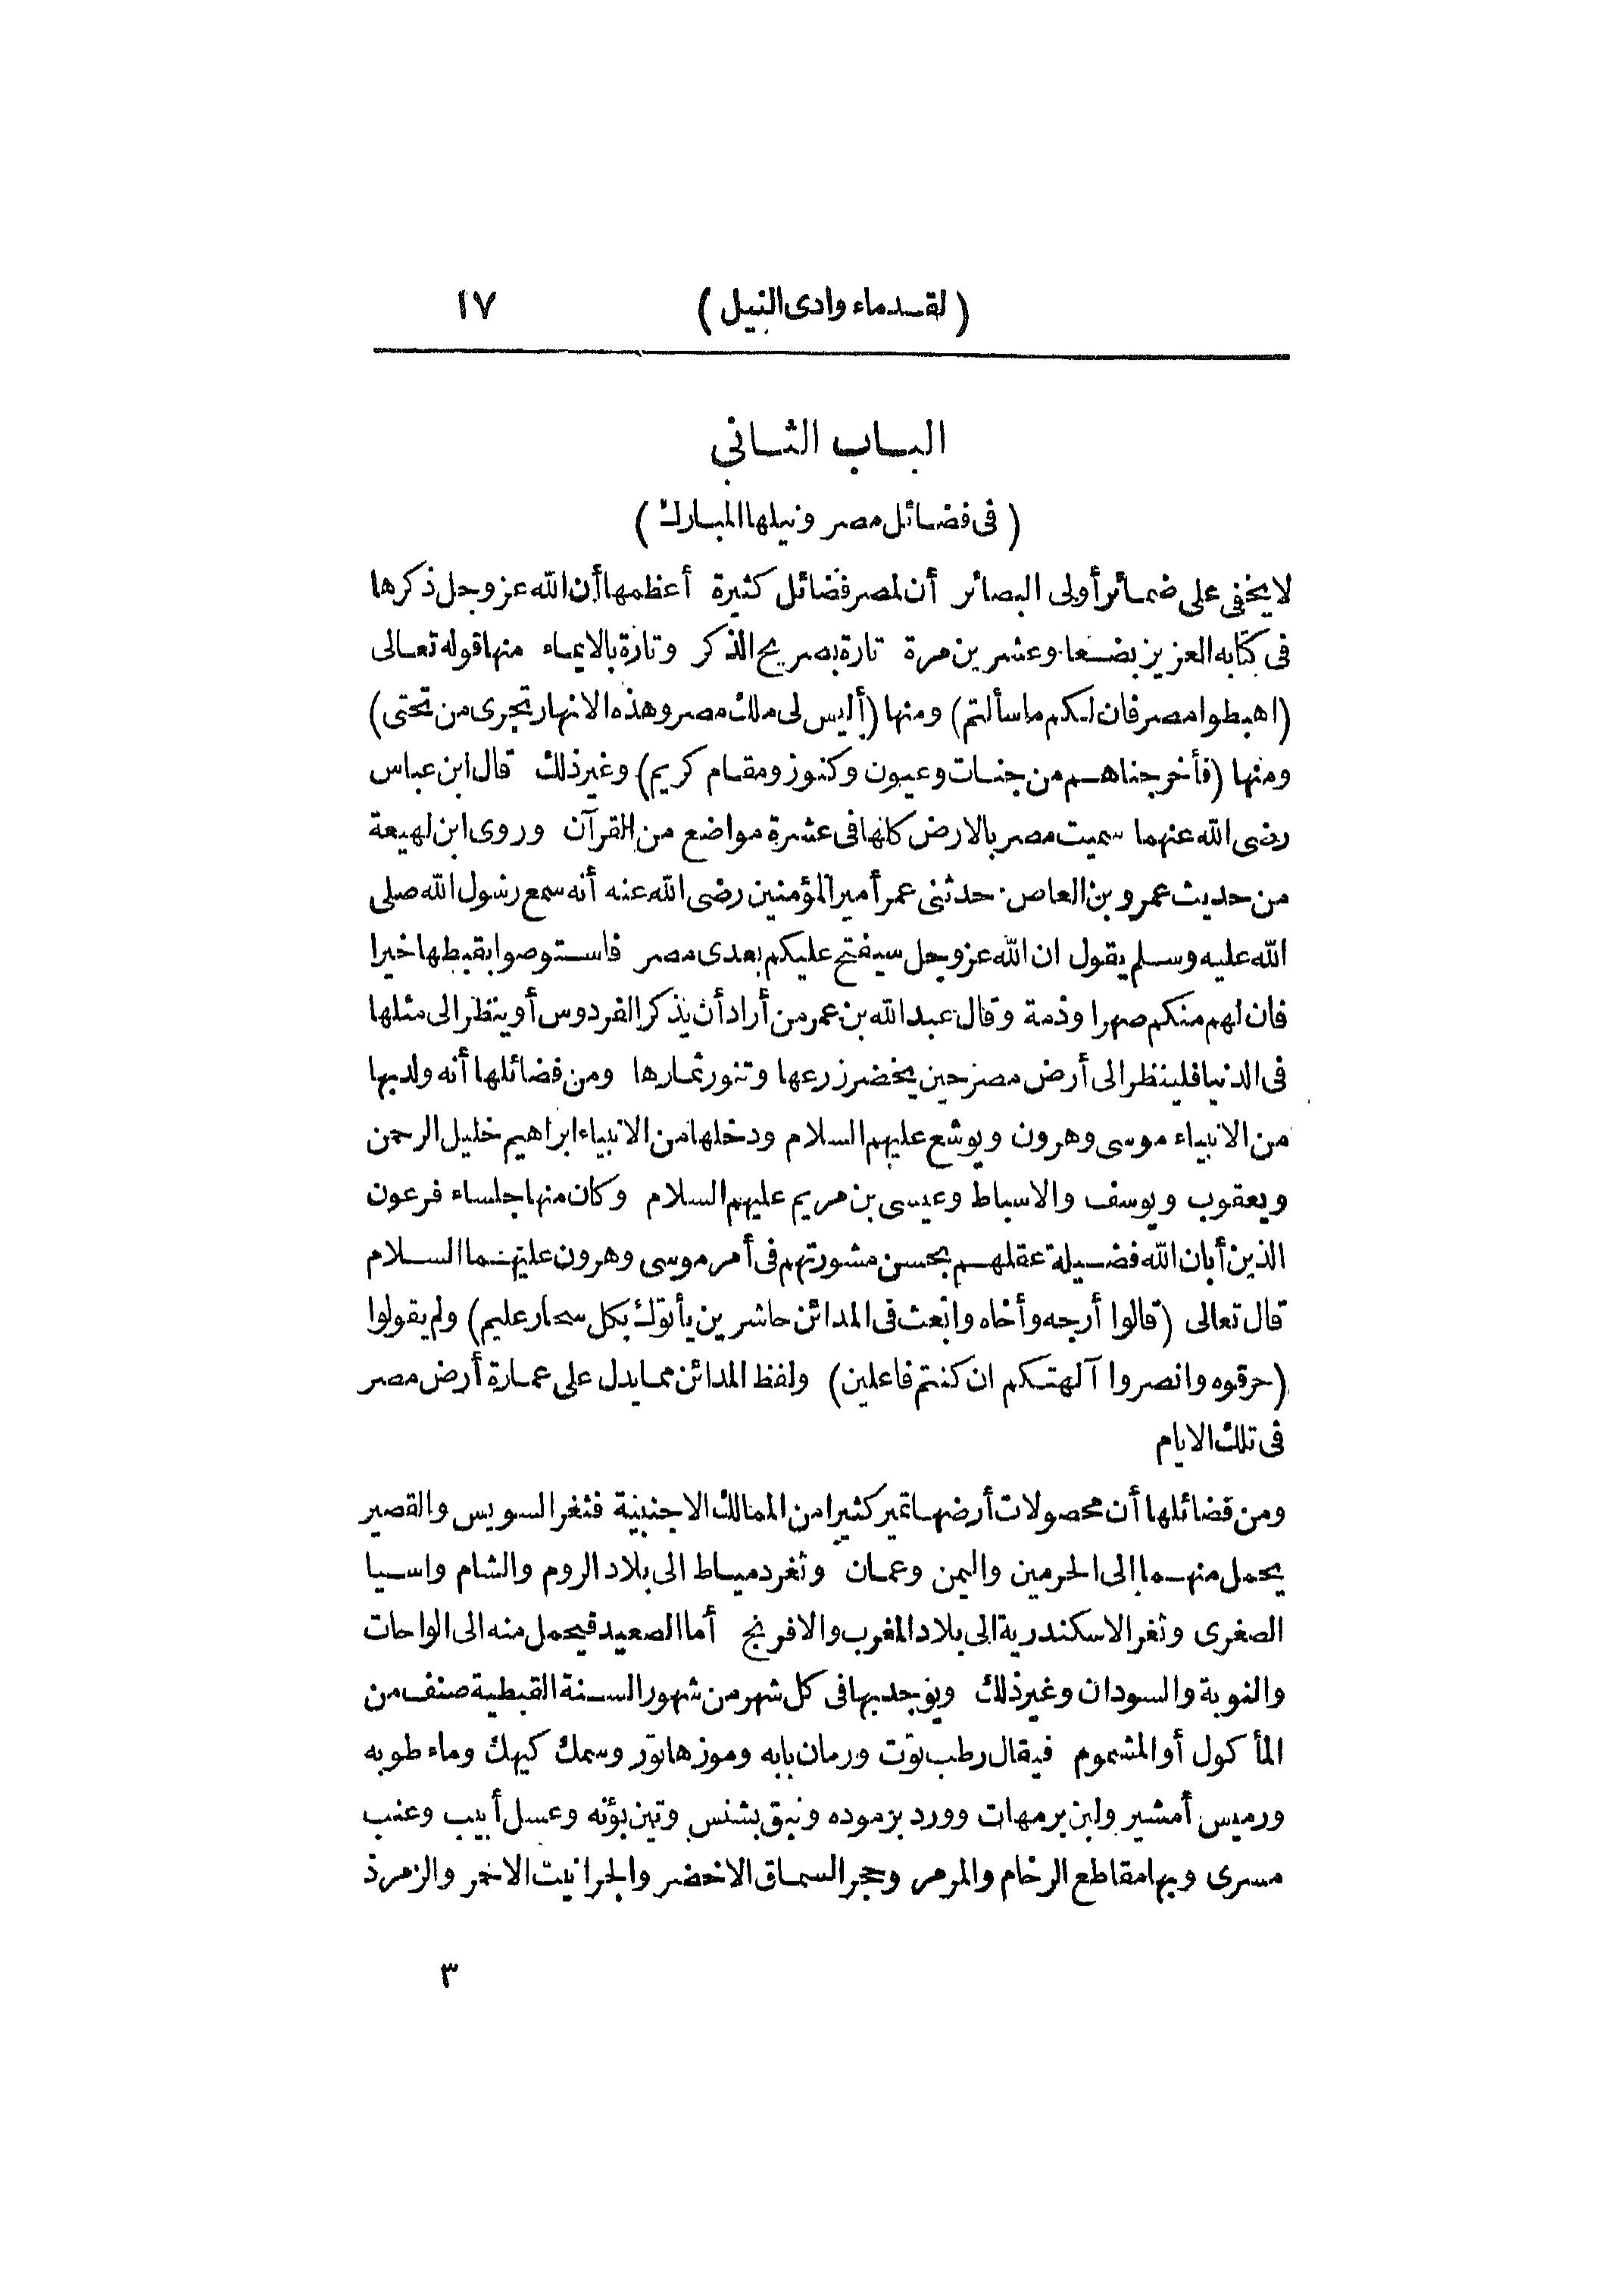 (لقدماء وادى النيل) ١٧
الباب الثانى
(فى فضائل مصر ونيلها المبارك)
لا يخفى على ضمائر أولى البصائر أن لمصر فضائل كثيرة أعظمها أن الله عز وجل ذكرها
فى كتابه العزيز بضعا وعشرين مرة تارة بصريح الذكر وتارة بالايماء منها قوله تعالى
(اهبطوا مصر فان لكم ما سألتم) ومنها (أليس لى ملك مصر وهذه الانهار تجرى من تحتى)
ومنها (فأخرجناهم من جنات وعيون وكنوز ومقام كريم) وغير ذلك قال ابن عباس
رضى الله عنهما سميت مصر بالارض كلها فى عشرة مواضع من القرآن وروى ابن لهيعة
من حديث عمرو بن العاص حدثنى عمر أمير المؤمنين رضى الله عنه أنه سمع رسول الله صلى
الله عليه وسلم يقول ان الله عز وجل سيفتح عليكم بعدى مصر فاستوصوا بقبطها خيرا
فان لهم منكم صهرا وذمة وقال عبد الله بن عمر من أراد أن يذكر الفردوس أو ينظر الى مثلها
فى الدنيا فلينظر الى أرض مصر حين يخضر زرعها وتنور ثمارها ومن فضائلها أنه ولد بها
من الانبياء موسى وهرون ويوشع عليهم السلام ودخلها من الانبياء ابراهيم خليل الرحمن
ويعقوب ويوسف والاسباط وعيسى بن مريم عليهم السلام وكان منها جلساء فرعون
الذين أبان الله فضيلة عقلهم بحسن مشورتهم فى أمر موسى وهرون عليهما السلام
قال تعالى (قالوا أرجه وأخاه وابعث فى المدائن حاشرين يأتوك بكل سحار عليم) ولم يقولوا
(حرقوه وانصروا آلهتكم ان كنتم فاعلين) ولفظ المدائن مما يدل على عمارة أرض مصر
فى تلك الايام
ومن فضائلها أن محصولات أرضها تمير كثيرا من الممالك الاجنبية فثغر السويس والقصير
يحمل منهما الى الحرمين واليمن وعمان وثغر دمياط الى بلاد الروم والشام واسيا
الصغرى وثغر الاسكندرية الى بلاد المغرب والافرنج أما الصعيد فيحمل منه الى الواحات
والنوبة والسودان وغير ذلك ويوجد بها فى كل شهر من شهور السنة القبطية صنف من
المأكول أو المشموم فيقال رطب توت ورمان بابه وموز هاتور وسمك كيهك وماء طوبه
ورميس أمشير ولبن برمهات وورد برموده ونبق بشنس وتين بؤنه وعسل أبيب وعنب
مسرى وبها مقاطع الرخام والمرمر وحجر السماق الاخضر والجرانيت الاحمر والزمرذ
٣